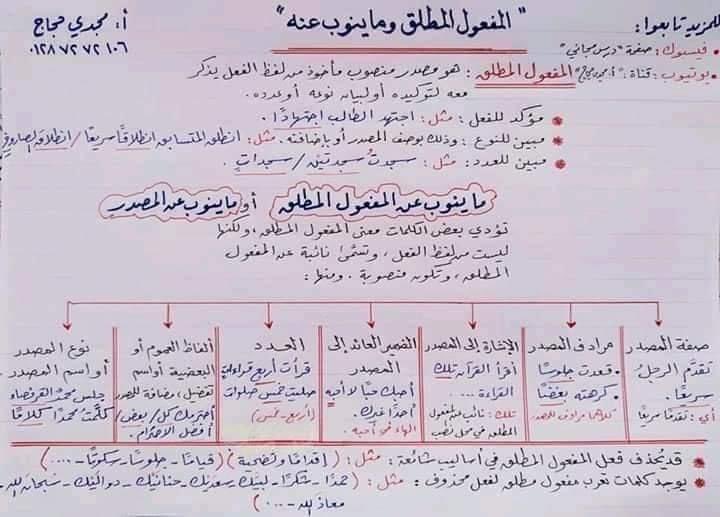 للمزيد تابعوا:
" المفعول المطلق وما ينوب عنه "
أ: مجدي حجاج
• فيسبوك: صفحة "درس مجاني"
٠١٢٨ ٧٢ ٧٢ ١٠٦
• يوتيوب: قناة: "أ. مجدي حجاج"
المفعول المطلق : هو مصدر منصوب مأخوذ من لفظ الفعل يذكر
معه لتوكيده أو لبيان نوعه أو عدده.
* مؤكد للفعل : مثل: اجتهد الطالب اجتهادًا.
* مبين للنوع : وذلك بوصف المصدر أو بإضافته. مثل: انطلق المتسابق انطلاقًا سريعًا / انطلاق الصاروخ
* مبين للعدد : مثل : سجدتُ سجدتين / سجدات.
ما ينوب عن المفعول المطلق أو ما ينوب عن المصدر
تؤدي بعض الكلمات معنى المفعول المطلق، ولكنها
ليست من لفظ الفعل، وتسمى نائبة عن المفعول
المطلق، وتكون منصوبة. ومنها:
صفة المصدر
تقدَّم الرجلُ
سريعًا.
أي: تقدمًا سريعًا
مرادف المصدر
• قعدت جلوسًا
• كرهته بغضًا
كلاهما مرادف للمصدر
الإشارة إلى المصدر
أقرأ القرآن تلك
القراءة ....
تلك: نائب عن المفعول
المطلق في محل نصب
الضمير العائد إلى
المصدر
أحبك حبًا لا أحبه
أحدًا غيرك.
الهاء في أحبه.
العدد
قرأت أربع قراءاتٍ
صليت خمس صلوات
(أربع - خمس)
ألفاظ العموم أو
البعضية أو اسم
تفضيل، مضافة للمصدر
أحترمك كل / بعض /
أفضل الاحترام.
نوع المصدر
أو اسم المصدر
جلس محمدٌ القرفصاء
كلَّمتُ محمدًا كلامًا
* قد يُحذف فعل المفعول المطلق في أساليب شائعة : مثل : ( إقدامًا وتضحية ) ( قيامًا - جلوسًا - سكوتًا - .... )
* يوجد كلمات تعرب مفعول مطلق لفعل محذوف : مثل : ( حمدًا - شكرًا - لبيك سعديك - حنانيك - دواليك - سبحان الله -
معاذ الله - ... )